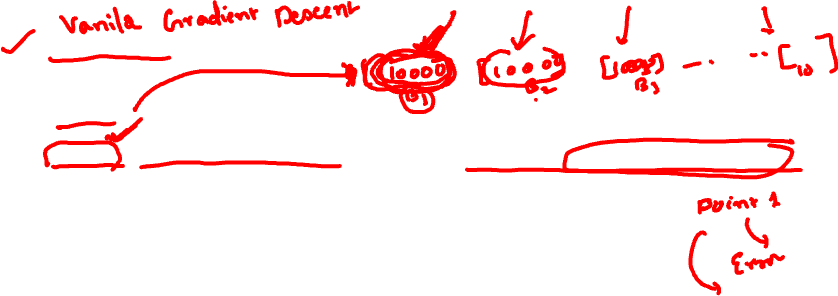 Vanila Gradient Descent
[10000] [10000] [10000] -- .. -- [10]
B1 B2 B3
Point 1
Error